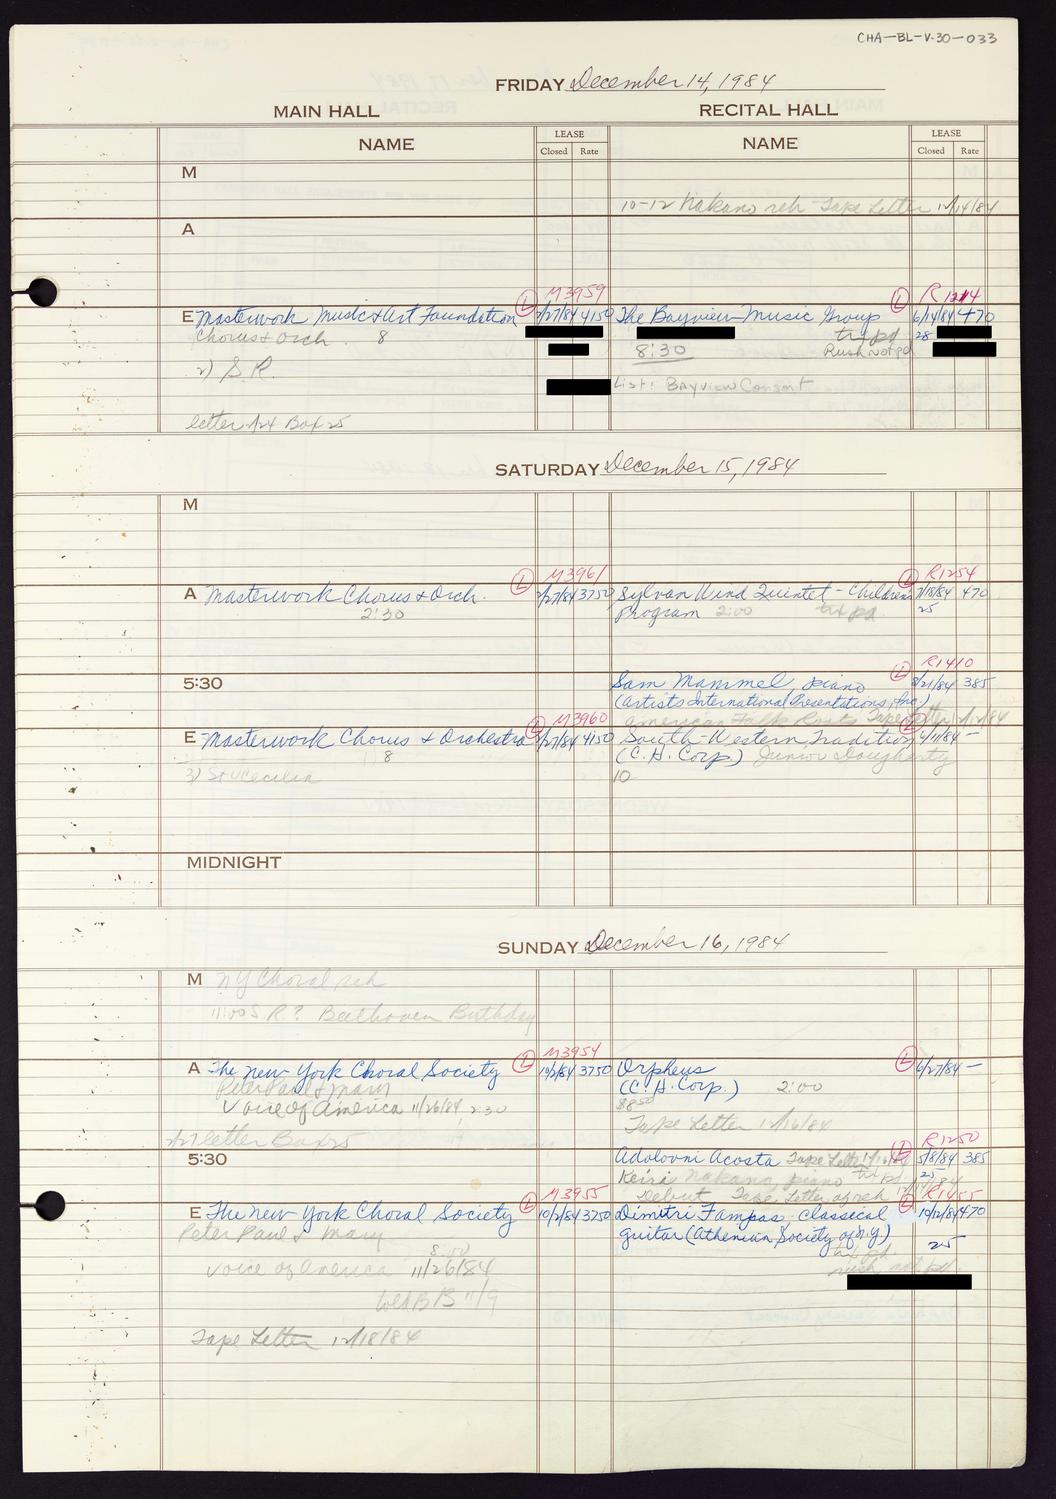 CHA-BL-V.30-033
FRIDAY December 14, 1984
MAIN HALL RECITAL HALL
NAME LEASE Closed Rate NAME LEASE Closed Rate
M
10-12 Nakano reh - Tape Letter 12/14/84
A
M3959 R1214
E Masterwork Music & Art Foundation L 2/27/84 4150 The Bayview Music Group L 6/14/84 470
Chorus & Orch. 8 txt pd 28
8:30 Rush not pd
2) S.R.
List: Bayview Consort
letter 1/24 Box 25
SATURDAY December 15, 1984
M
M3961 R1254
A Masterwork Chorus & Orch. L 2/27/84 3750 Sylvan Wind Quintet - Childrens L 7/18/84 470
2:30 Program 2:00 txt pd. 25
R1410
5:30 Sam Mammel piano L 8/21/84 385
(Artists International Presentations, Inc.)
M3960 American Folk Roots Tape Letter 12/12/84
E Masterwork Chorus & Orchestra L 2/27/84 4150 South-Western Tradition L 4/11/84 -
8 (C.H. Corp.) Junior Daugharty
3) St Cecilia 10
MIDNIGHT
SUNDAY December 16, 1984
M NY Choral reh
11:00 S.R.? Beethoven Birthday
M3954
A The New York Choral Society L 10/2/84 3750 Orpheus L 6/27/84 -
Peter Paul & Mary (C.H. Corp.) 2:00
Voice of America 11/26/84 2:30 $8.50
Tape Letter 12/16/84
letter Box 25
R1250
5:30 Adolovni Acosta Tape Letter L 5/8/84 385
Keiri Nakano, piano txt pd 25
M3955 Debut Tape Letter of reh R1455
E The New York Choral Society L 10/2/84 3750 Dimitri Fampas Classical L 10/12/84 470
Peter Paul & Mary guitar (Athenian Society of N.Y.)
8:00 25
Voice of America 11/26/84 txt pd
rush not pd.
11/9
Tape Letter 12/18/84